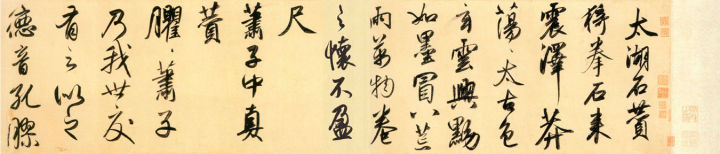 太湖石贊
猗拳石来
震澤莽
蕩々太古色
玄雲興黝
如墨冒八荒
雨萬物卷
之懷不盈
尺
蕭子中真
贊
臞々蕭子
乃我世交
有之似之
德音孔膠